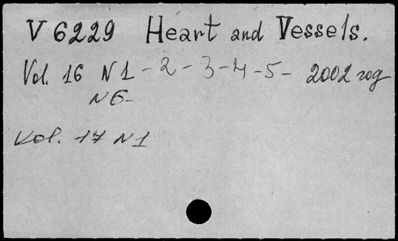 V 6229 Heart and Vessels.
Vol. 16 N1-2-3-4-5- 2002 год
N6-
Vol. 17 N1